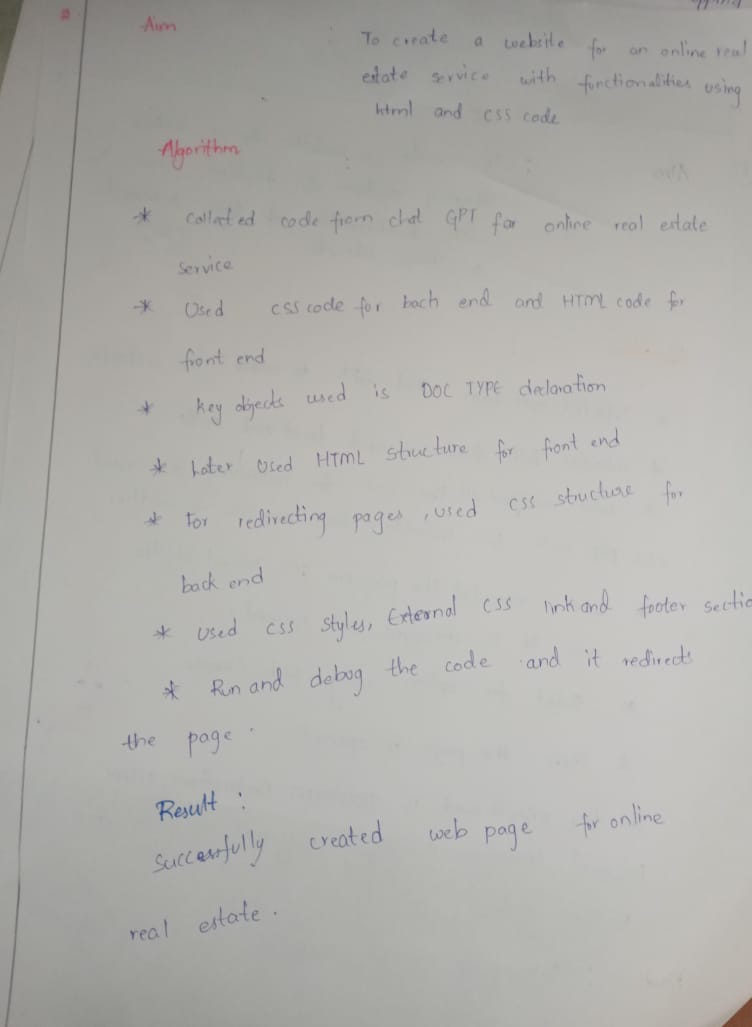 Aim
To create a website for an online real
estate service with functionalities using
html and css code
Algorithm
* Collected code from chat GPT for online real estate
service
* Used css code for bach end and HTML code for
front end
* key objects used is DOC TYPE declaration
* Later Used HTML structure for front end
* For redirecting pages, used css structure for
back end
* Used css styles, External css link and footer sectio
* Run and debug the code and it redirects
the page.
Result :
Successfully created web page for online
real estate.